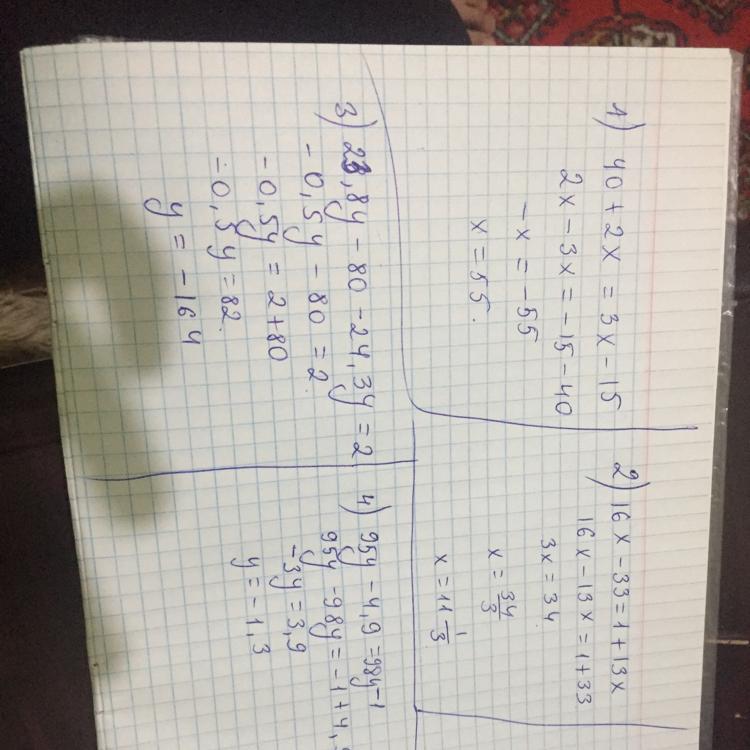 1) 40 + 2x = 3x - 15
2x - 3x = -15 - 40
-x = -55
x = 55.
2) 16x - 33 = 1 + 13x
16x - 13x = 1 + 33
3x = 34
x = 34/3
x = 11 1/3
3) 23,8y - 80 - 24,3y = 2
-0,5y - 80 = 2
-0,5y = 2 + 80
-0,5y = 82
y = -164
4) 95y - 4,9 = 98y - 1
95y - 98y = -1 + 4,
-3y = 3,9
y = -1,3